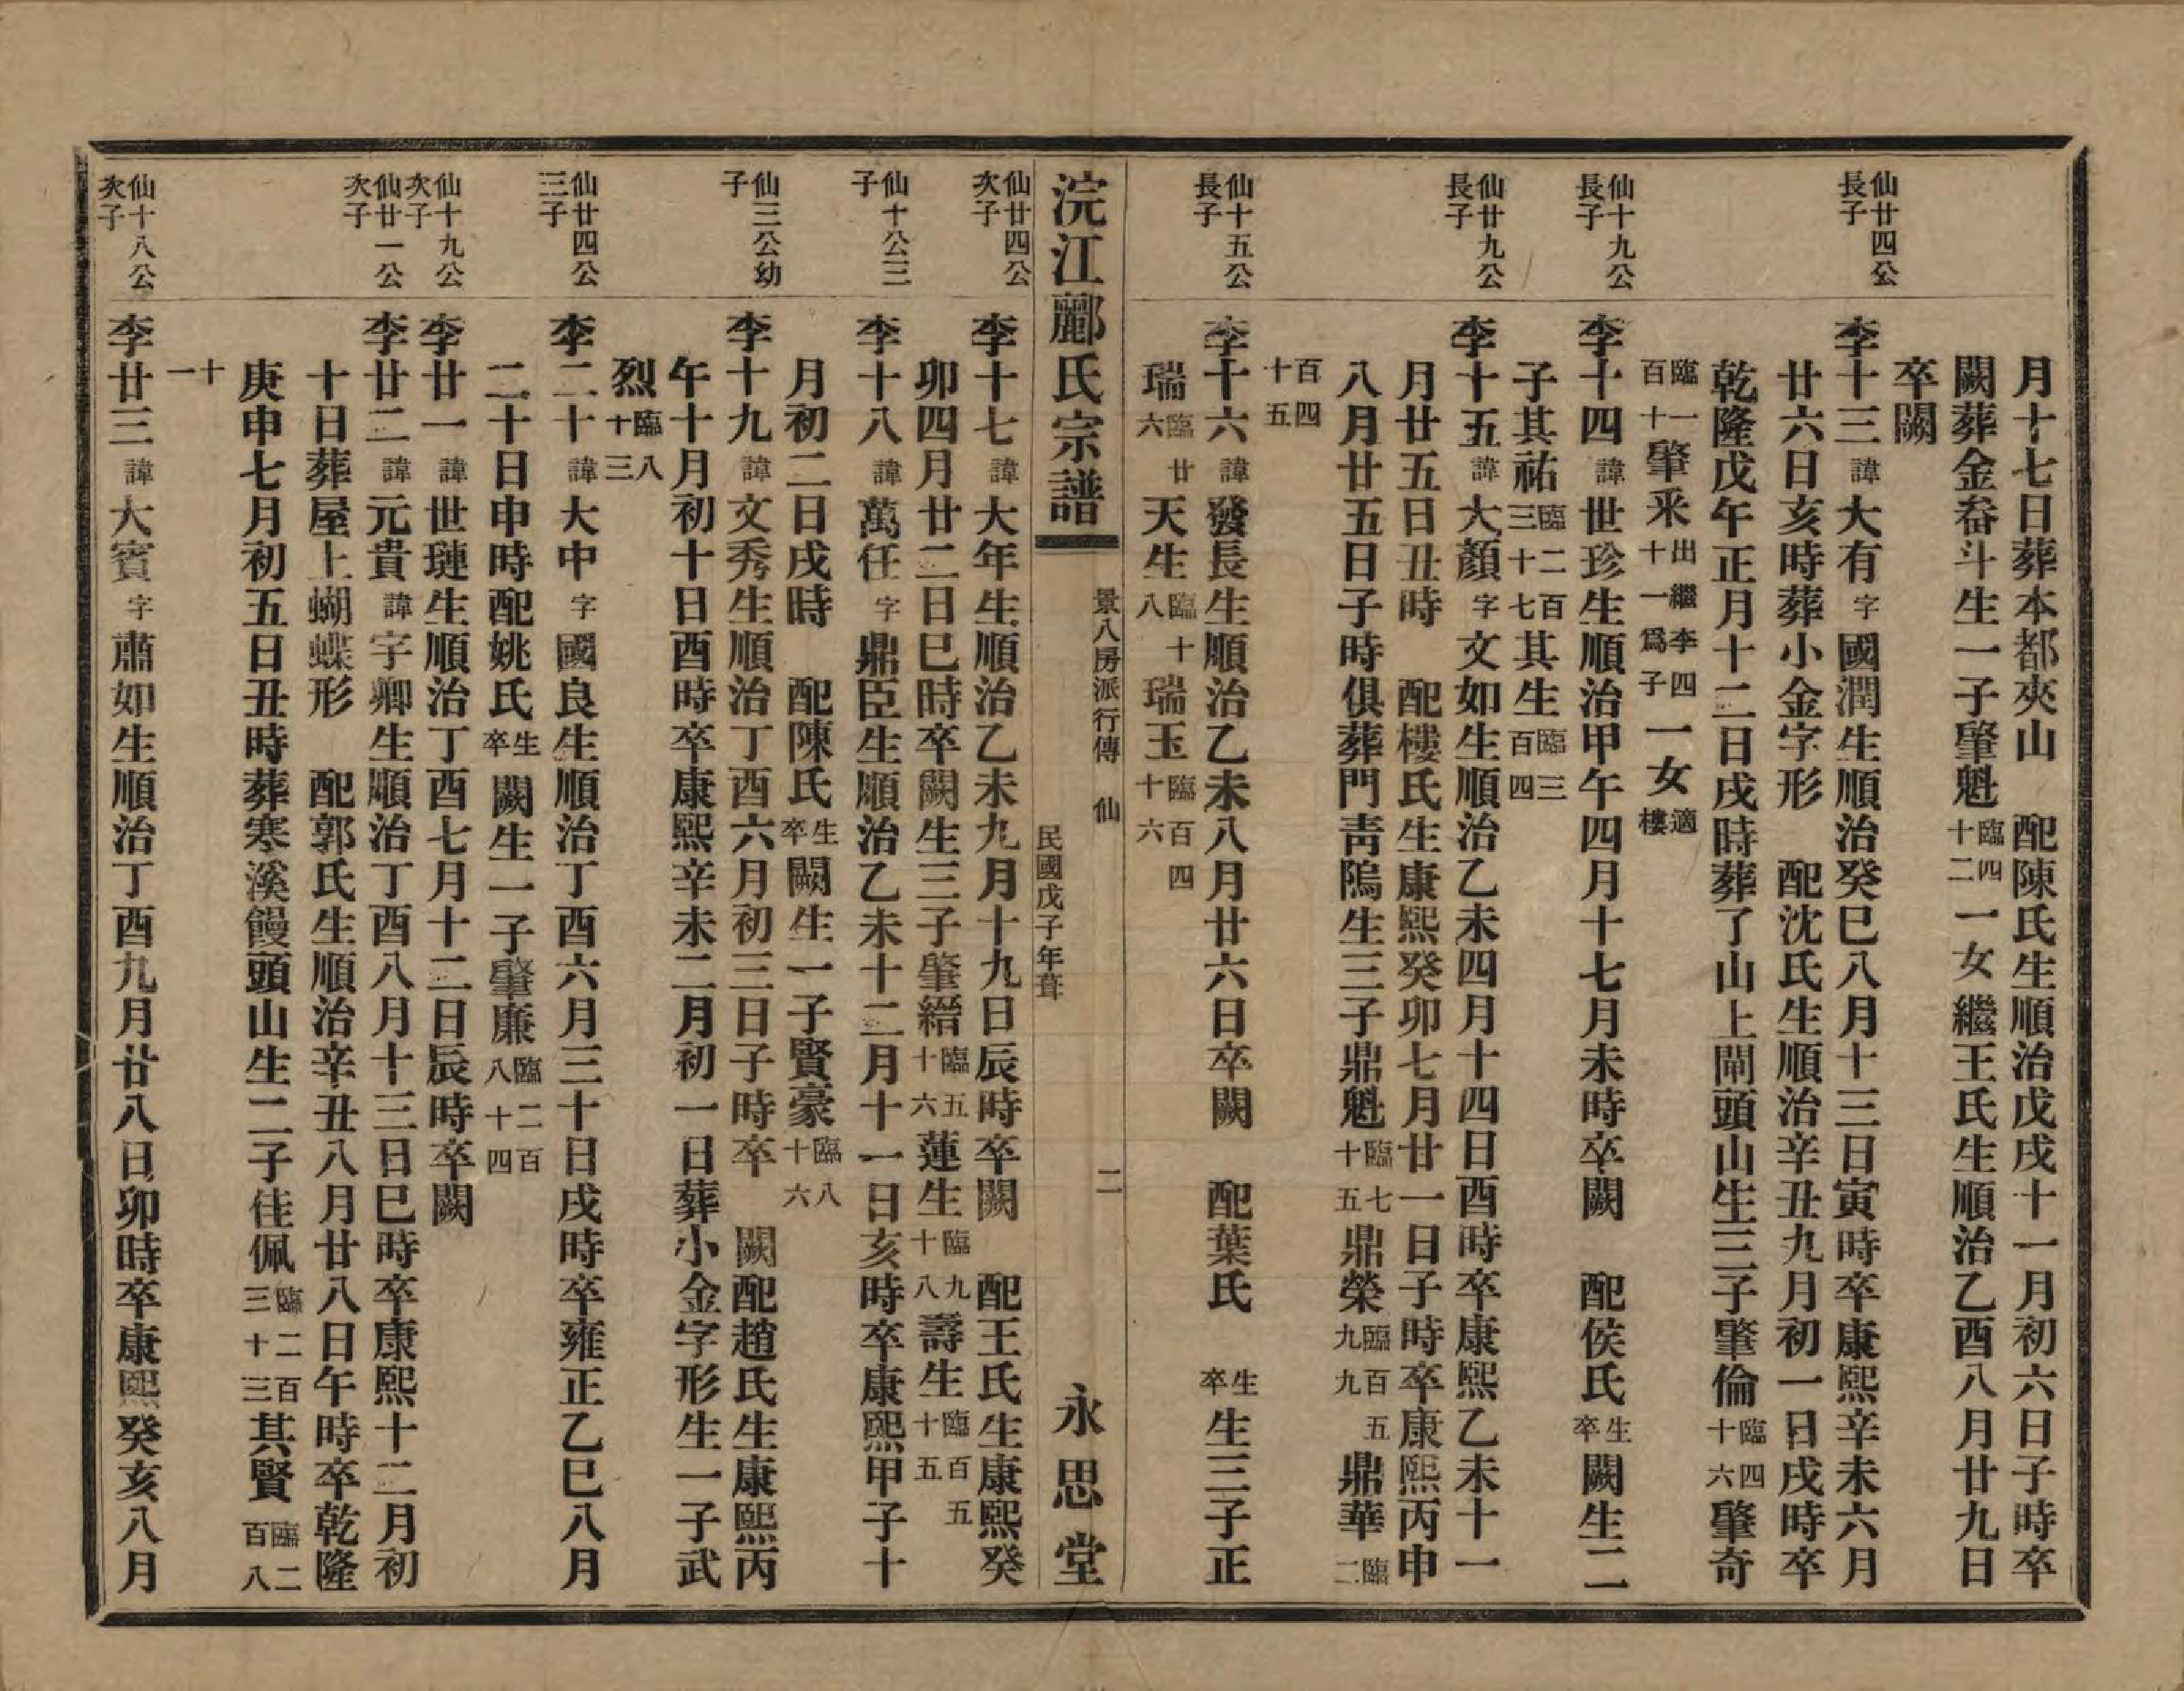 月十七日葬本都夾山　配陳氏生順治戊戌十一月初六日子時卒
闕葬金畚斗生一子肇魁臨四十二一女繼王氏生順治乙酉八月廿九日
卒闕
仙廿四公長子
李十三諱大有字國潤生順治癸巳八月十三日寅時卒康熙辛未六月
廿六日亥時葬小金字形　配沈氏生順治辛丑九月初一日戌時卒
乾隆戊午正月十二日戌時葬了山上閘頭山生三子肇倫臨四十六肇奇
臨一百十一肇釆出繼李四十一爲子一女適樓
仙十九公長子
李十四諱世珍生順治甲午四月十七月未時卒闕　配侯氏生卒闕生二
子其祐臨二百三十七其生臨三百四
仙廿九公長子
李十五諱大顏字文如生順治乙未四月十四日酉時卒康熙乙未十一
月廿五日丑時　配樓氏生康熙癸卯七月廿一日子時卒康熙丙申
八月廿五日子時俱葬門靑隝生三子鼎魁臨七十五鼎榮臨百五九九鼎華臨二
百四十五
仙十五公長子
李十六諱發長生順治乙未八月廿六日卒闕　配葉氏　生卒生三子正
瑞臨廿六天生臨十八瑞玉臨百四十六
浣江酈氏宗譜
景八房派行傳　仙
二
民國戊子年葺
永思堂
仙廿四公次子
李十七諱大年生順治乙未九月十九日辰時卒闕　配王氏生康熙癸
卯四月廿二日巳時卒闕生三子肇縉臨五十六蓮生臨九十八壽生臨百五十五
仙十公三子
李十八諱萬任字鼎臣生順治乙未十二月十一日亥時卒康熙甲子十
月初二日戌時　配陳氏生卒闕生一子賢豪臨八十六
仙三公幼子
李十九諱文秀生順治丁酉六月初三日子時卒　闕配趙氏生康熙丙
午十月初十日酉時卒康熙辛未二月初一日葬小金字形生一子武
烈臨八十三
仙廿四公三子
李二十諱大中字國良生順治丁酉六月三十日戌時卒雍正乙巳八月
二十日申時配姚氏生卒闕生一子肇廉臨二百八十四
仙十九公次子
李廿一諱世璉生順治丁酉七月十二日辰時卒闕
仙廿一公次子
李廿二諱元貴諱字卿生順治丁酉八月十三日巳時卒康熙十二月初
十日葬屋上蝴蝶形　配郭氏生順治辛丑八月廿八日午時卒乾隆
庚申七月初五日丑時葬寒溪饅頭山生二子佳佩臨二百三十三其賢臨二百八
十一
仙十八公次子
李廿三諱大賓字肅如生順治丁酉九月廿八日卯時卒康熙癸亥八月